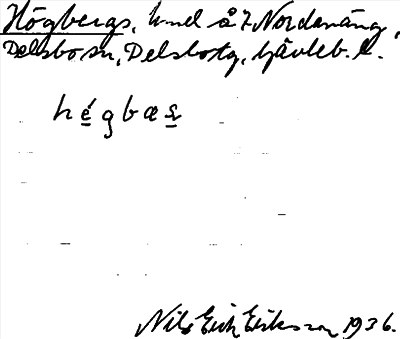 Högbergs, hmd å 7 Nordanäng,
Delsbo sn, Delsbo tg, Gävleb. l.
hégbæș
Nils Erik Eriksson 1936.